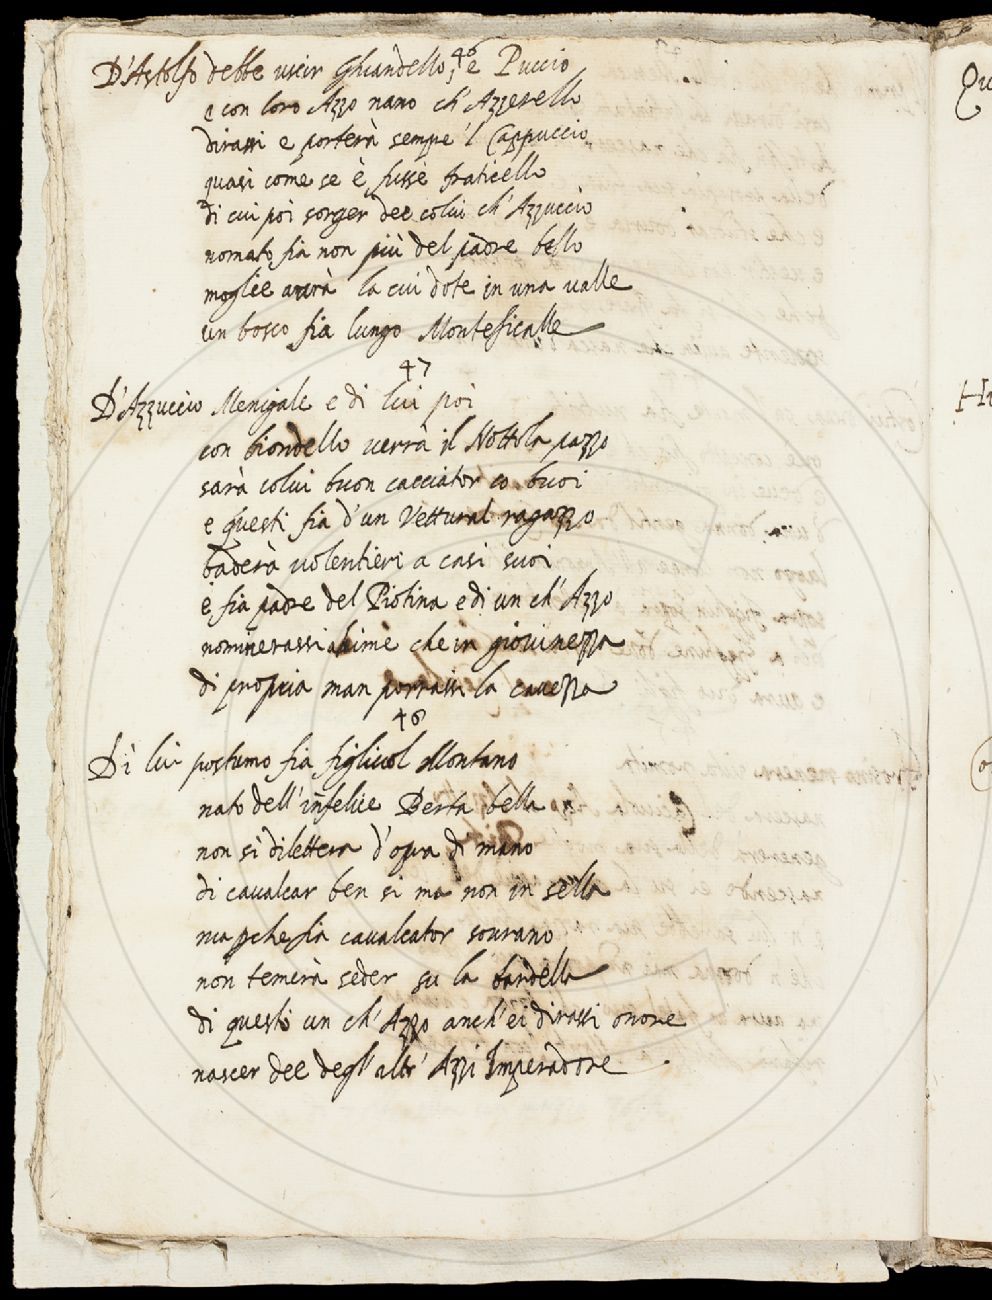 46
D'Astolfo debbe uscir Ghiandello, e Puccio
e con loro Azzo nano ch'Azzerello
dirassi e porterà sempre 'l Cappuccio
quasi come se è fusse fraticello
di cui poi sorger dee colui ch'Azzuccio
nomato fia non più del padre bello
moglie avrà la cui dote in una valle
un bosco fia lungo Monteficalle
47
D'Azzuccio Menigale e di lui poi
con biondello verrà il Nottola pazzo
sarà colui buon cacciator co buoi
e questi fia d'un Vettural ragazzo
baderà volentieri a casi suoi
e fia padre del Piotina e di un ch'Azzo
nominerassi ahimè che in giovinezza
di propria man porrassi la cavezza
48
Di lui postumo fia figliuol Montano
nato dell'infelice Berta bella
non si diletterà d'opra di mano
di cavalcar ben si ma non in sella
ma pche fia cavalcator sovrano
non temerà seder su la bardella
di questo un ch'Azzo anch'ei dirassi onore
nascer dee degl'altr'Azzi Imperadore
Qu